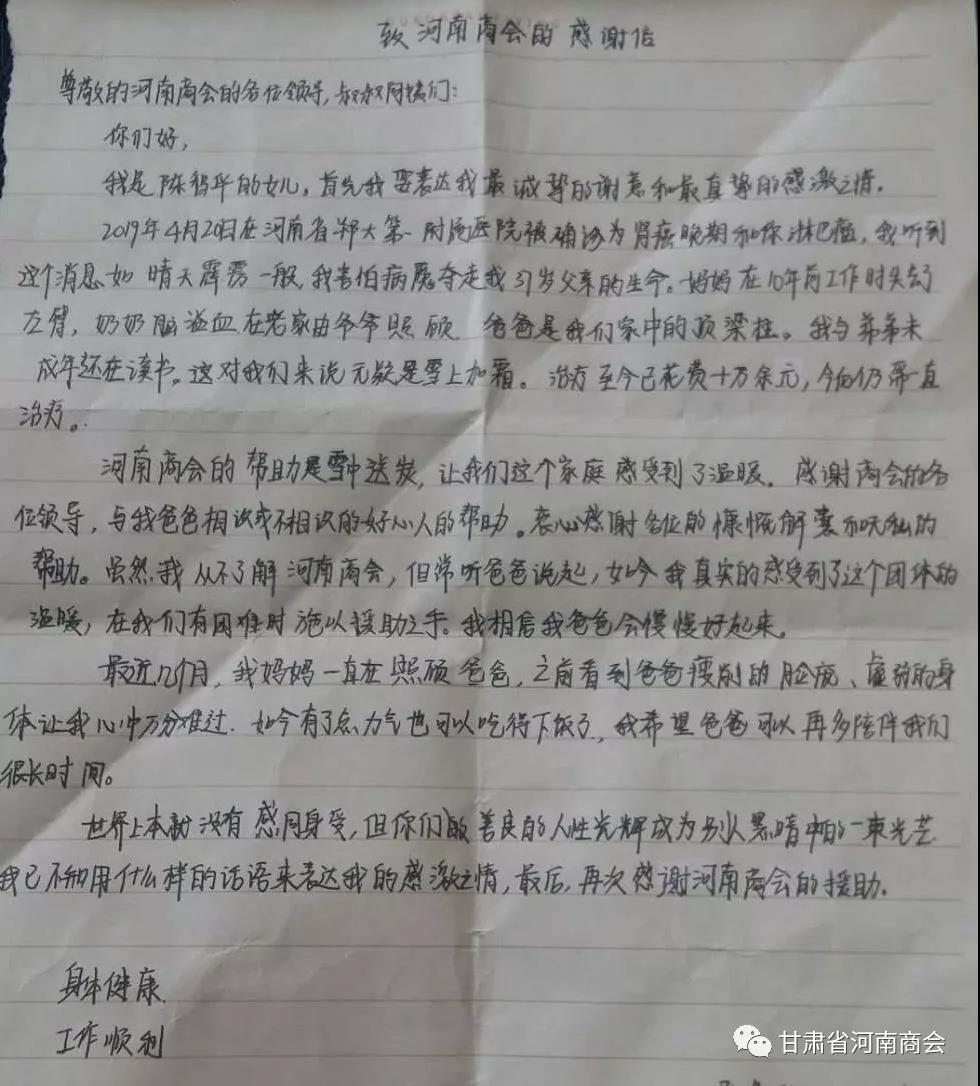 致河南商会的感谢信
尊敬的河南商会的各位领导,叔叔阿姨们:
你们好,
我是陈 华的女儿,首先我要表达我最诚挚的谢意和最真挚的感激之情.
2019年4月20日在河南省郑大第一附属医院被确诊为肾癌晚期和 淋巴癌,我听到
这个消息如晴天霹雳一般,我害怕病魔夺走我 岁父亲的生命。妈妈在10年前工作时失去了
左臂,奶奶脑溢血在老家由爷爷照顾 爸爸是我们家中的顶梁柱。我与弟弟未
成年还在读书。这对我们来说无疑是雪上加霜。治疗至今已花费十万余元,今后仍需一直
治疗。
河南商会的帮助是雪中送炭,让我们这个家庭感受到了温暖.感谢商会的各
位领导,与我爸爸相识或不相识的好心人的帮助。衷心感谢各位的慷慨解囊和无私的
帮助。虽然我从不了解河南商会,但常听爸爸说起,如今我真实的感受到了这个团体的
温暖,在我们有困难时施以援助之手。我相信我爸爸会慢慢好起来.
最近几个月,我妈妈一直在照顾爸爸,之前看到爸爸瘦削的脸庞、虚弱的身
体让我心中万分难过.如今有了点力气也可以吃得下饭了,我希望爸爸可以再多陪伴我们
很长时间。
世界上本就没有感同身受,但你们的善良的人性光辉成为别人黑暗中的一束光芒.
我已不知用什么样的话语来表达我的感激之情,最后,再次感谢河南商会的援助.
身体健康.
工作顺利
甘肃省河南商会